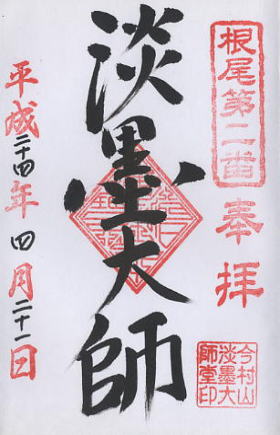 根尾第二番
奉拝
今村山
淡墨大
師堂印
淡墨大師
平成二十四年四月二十一日